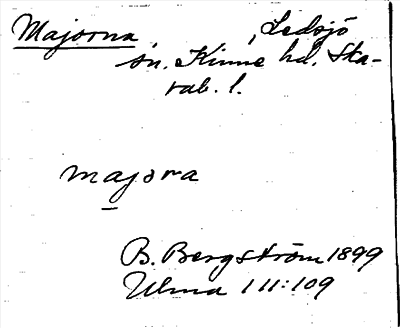 Majorna, , Ledsjö
sn. Kinne hd. Ska-
rab. l.
majora
B. Bergström 1899
Ulma 111:109